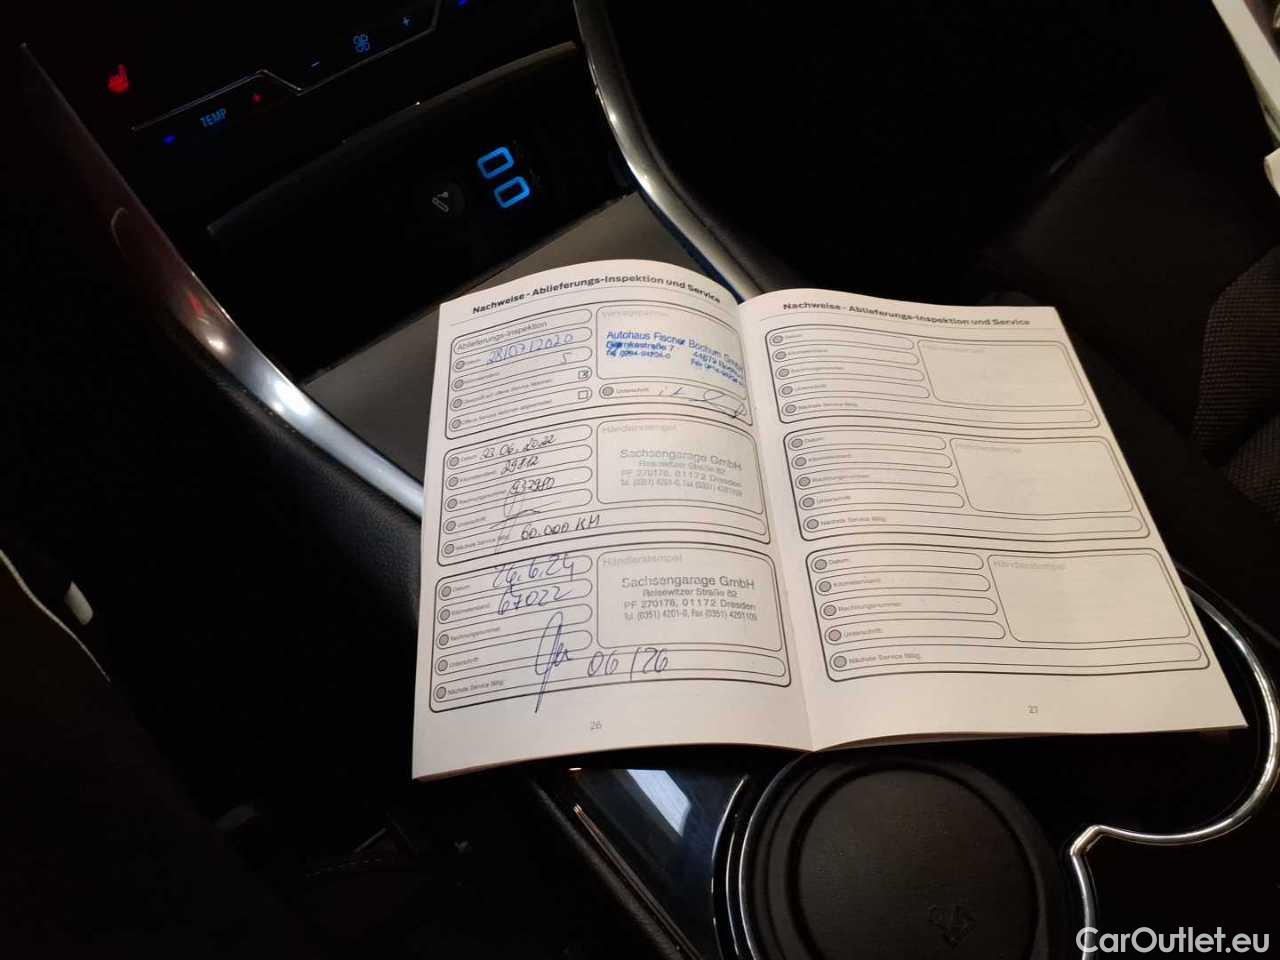 TEMP
Nachweise - Ablieferungs-Inspektion und Service
Ablieferungs-Inspektion
Vertragspartner
Datum: 28/07/2020
5
Autohaus Fischer Bochum GmbH
Unterschrift:
Datum: 23.06.2022
Händlerstempel
Kilometerstand: 29812
Sachsengarage GmbH
Rechnungsnummer:
Reisewitzer Straße 82
PF 270178, 01172 Dresden
Unterschrift:
Tel. (0351) 4201-0, Fax (0351) 4201109
Nächste Service fällig: 60.000 KM
Datum: 26.6.24
Händlerstempel
Kilometerstand: 67022
Sachsengarage GmbH
Rechnungsnummer:
Reisewitzer Straße 82
PF 270178, 01172 Dresden
Unterschrift:
Tel. (0351) 4201-0, Fax (0351) 4201109
Nächste Service fällig: 06/26
26
Nachweise - Ablieferungs-Inspektion und Service
Datum:
Händlerstempel
Kilometerstand:
Rechnungsnummer:
Unterschrift:
Nächste Service fällig:
Datum:
Händlerstempel
Kilometerstand:
Rechnungsnummer:
Unterschrift:
Nächste Service fällig:
Datum:
Händlerstempel
Kilometerstand:
Rechnungsnummer:
Unterschrift:
Nächste Service fällig:
27
CarOutlet.eu